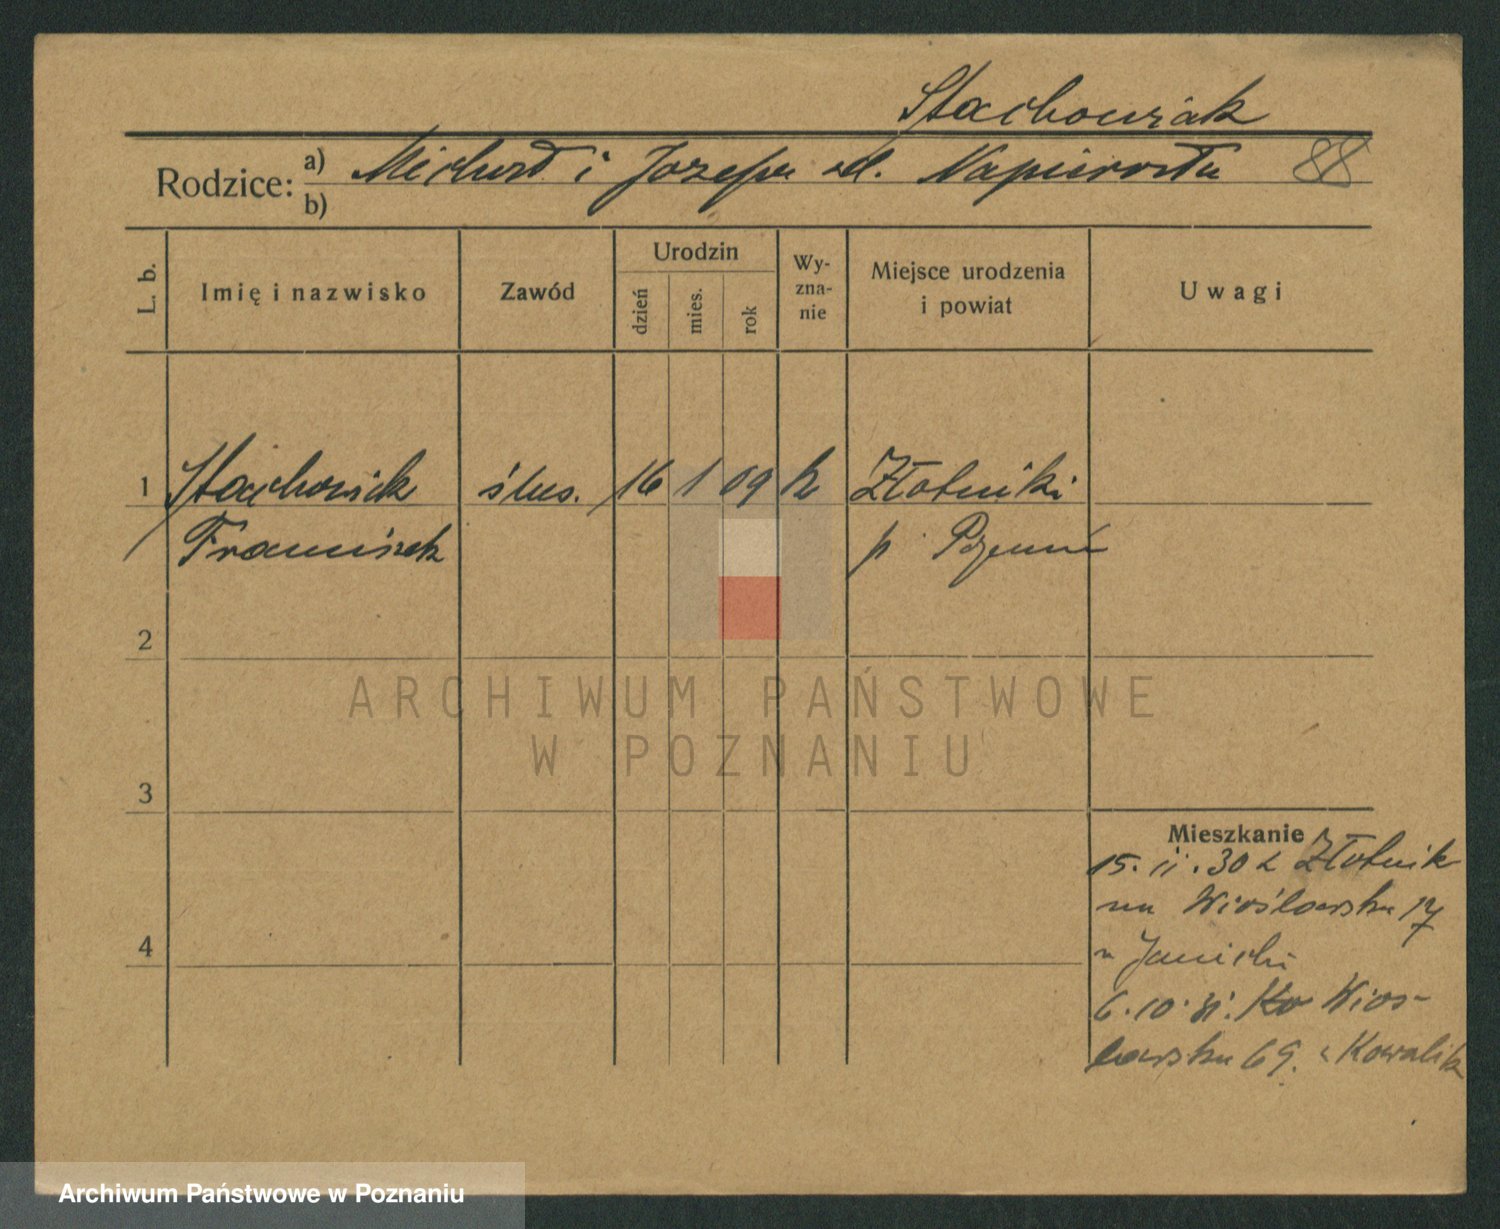 Stachowiak
Rodzice: a) Michał i Józefa Napierała 88
b)
L. b.
Imię i nazwisko
Zawód
Urodzin
dzień
mies.
rok
Wy-
zna-
nie
Miejsce urodzenia
i powiat
Uwagi
1 Stachowiak ślus. 16 1 09 k Złotniki
Franciszek p. Poznań
2
3
4
Mieszkanie
15. 11. 30 z Złotnik
na Wioślarska 17
u Janicki
6. 10. 31. Wioś-
larska 69. u Kowalik
ARCHIWUM PAŃSTWOWE
W POZNANIU
Archiwum Państwowe w Poznaniu